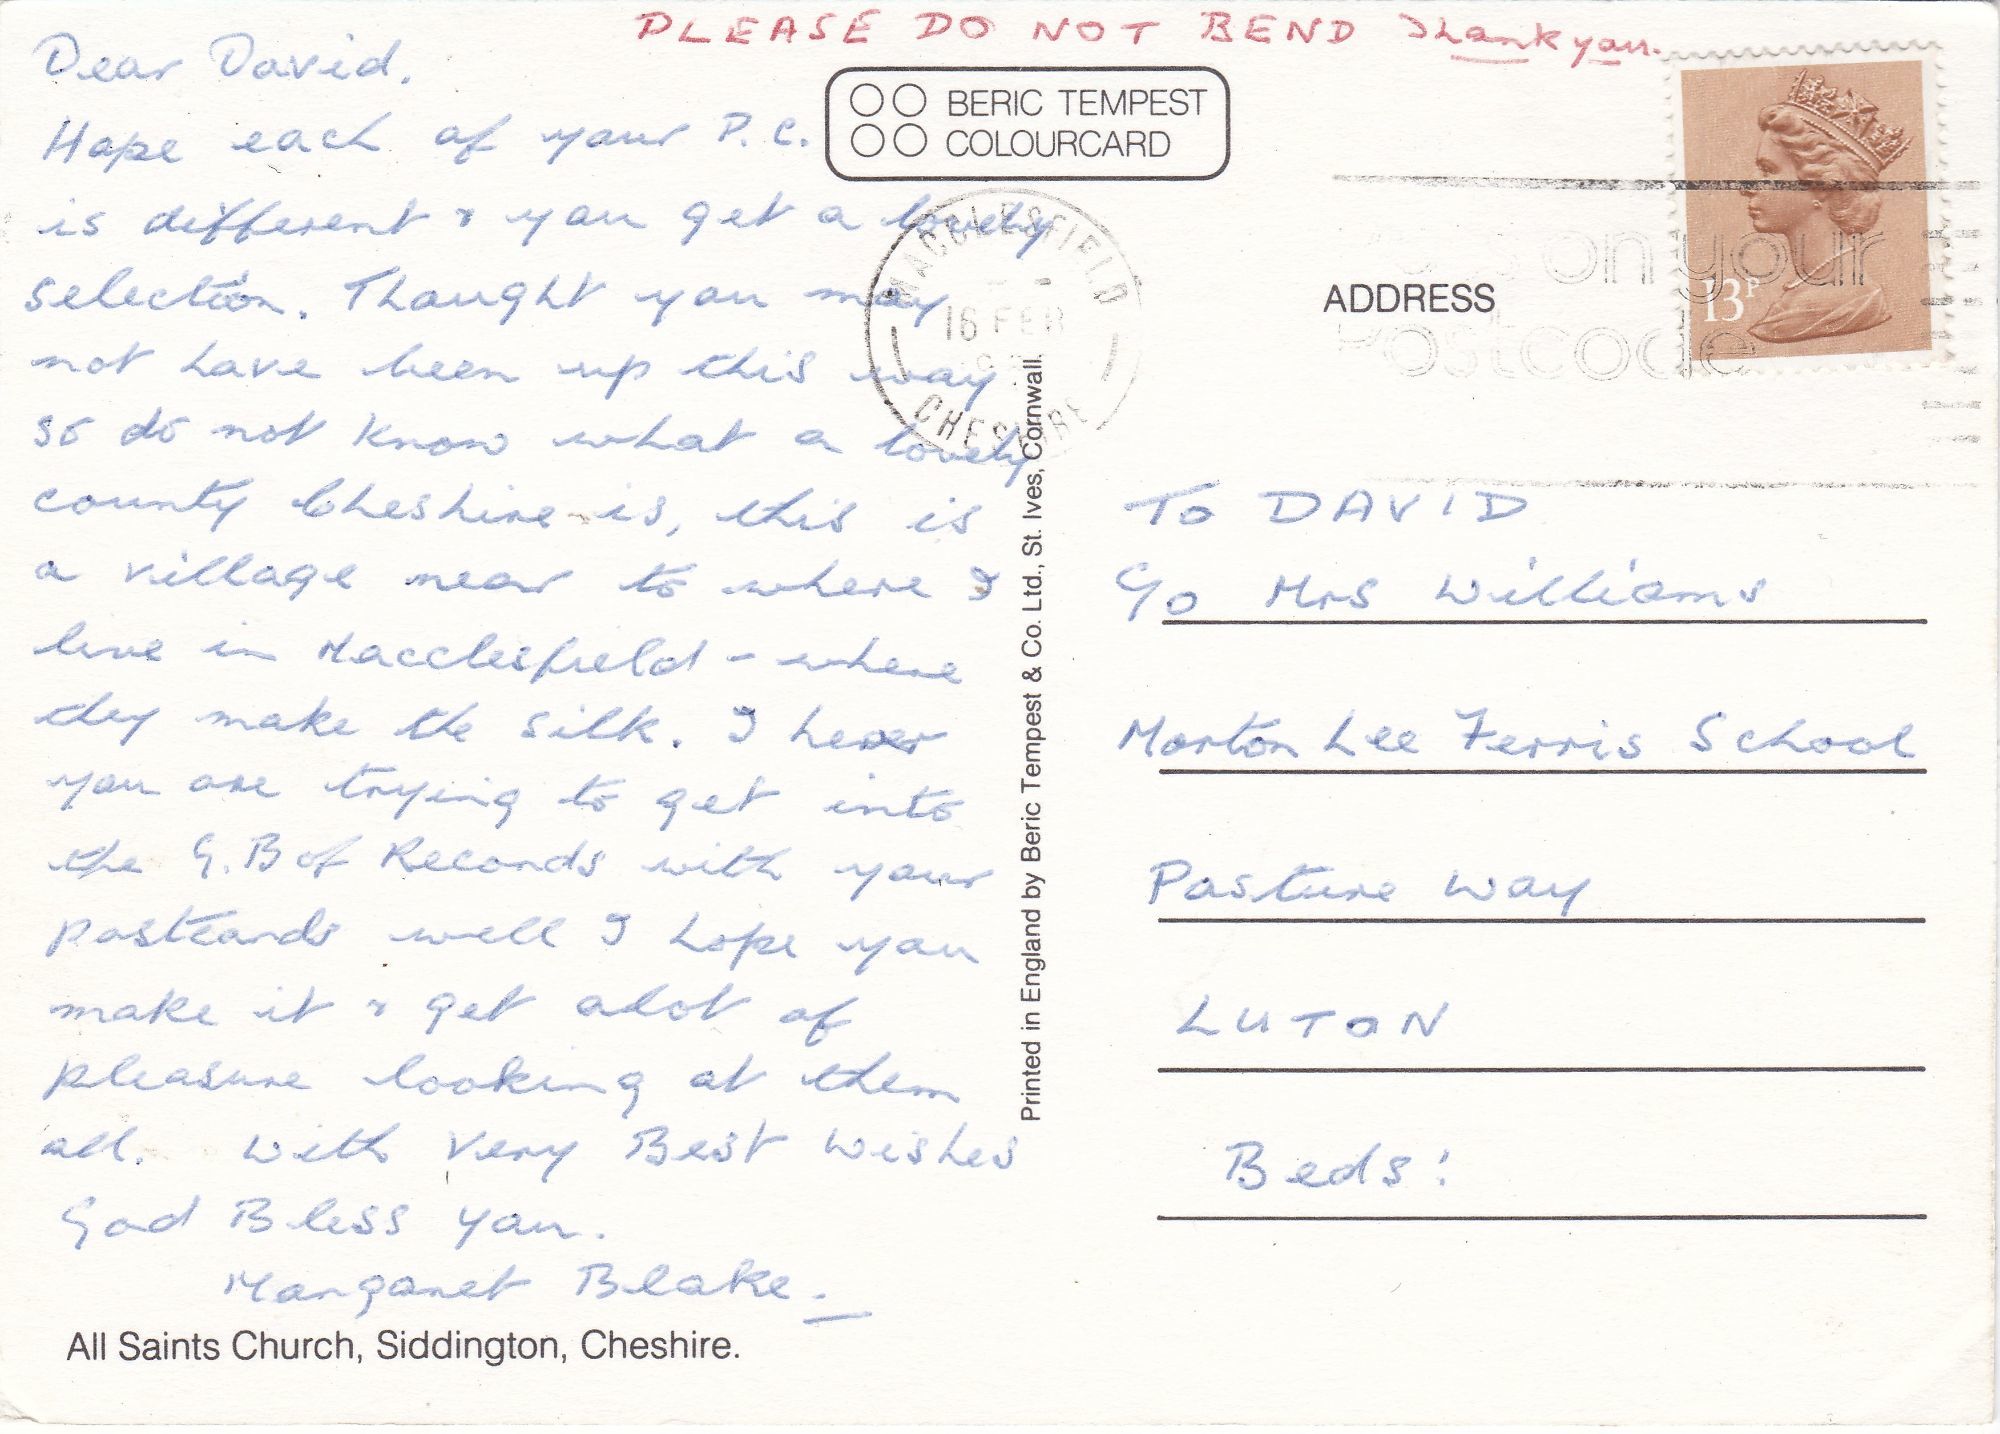 PLEASE DO NOT BEND Thank you.
Dear David.
Hope each of your P.C.
is different & you get a lovely
selection. Thought you may
not have been up this way
so do not know what a lovely
county Cheshire is, this is
a village near to where I
live in Macclesfield - where
they make the silk. I hear
you are trying to get into
the G.B of Records with your
postcards well I hope you
make it & get alot of
pleasure looking at them
all. With Very Best Wishes
God Bless You.
Margaret Blake.
All Saints Church, Siddington, Cheshire.
BERIC TEMPEST
COLOURCARD
MACCLESFIELD
16 FEB
CHESHIRE
Printed in England by Beric Tempest & Co. Ltd., St. Ives, Cornwall.
on your
Postcode
13P
ADDRESS
To DAVID
c/o Mrs Williams
Morton Lee Ferris School
Pasture Way
LUTON
Beds: